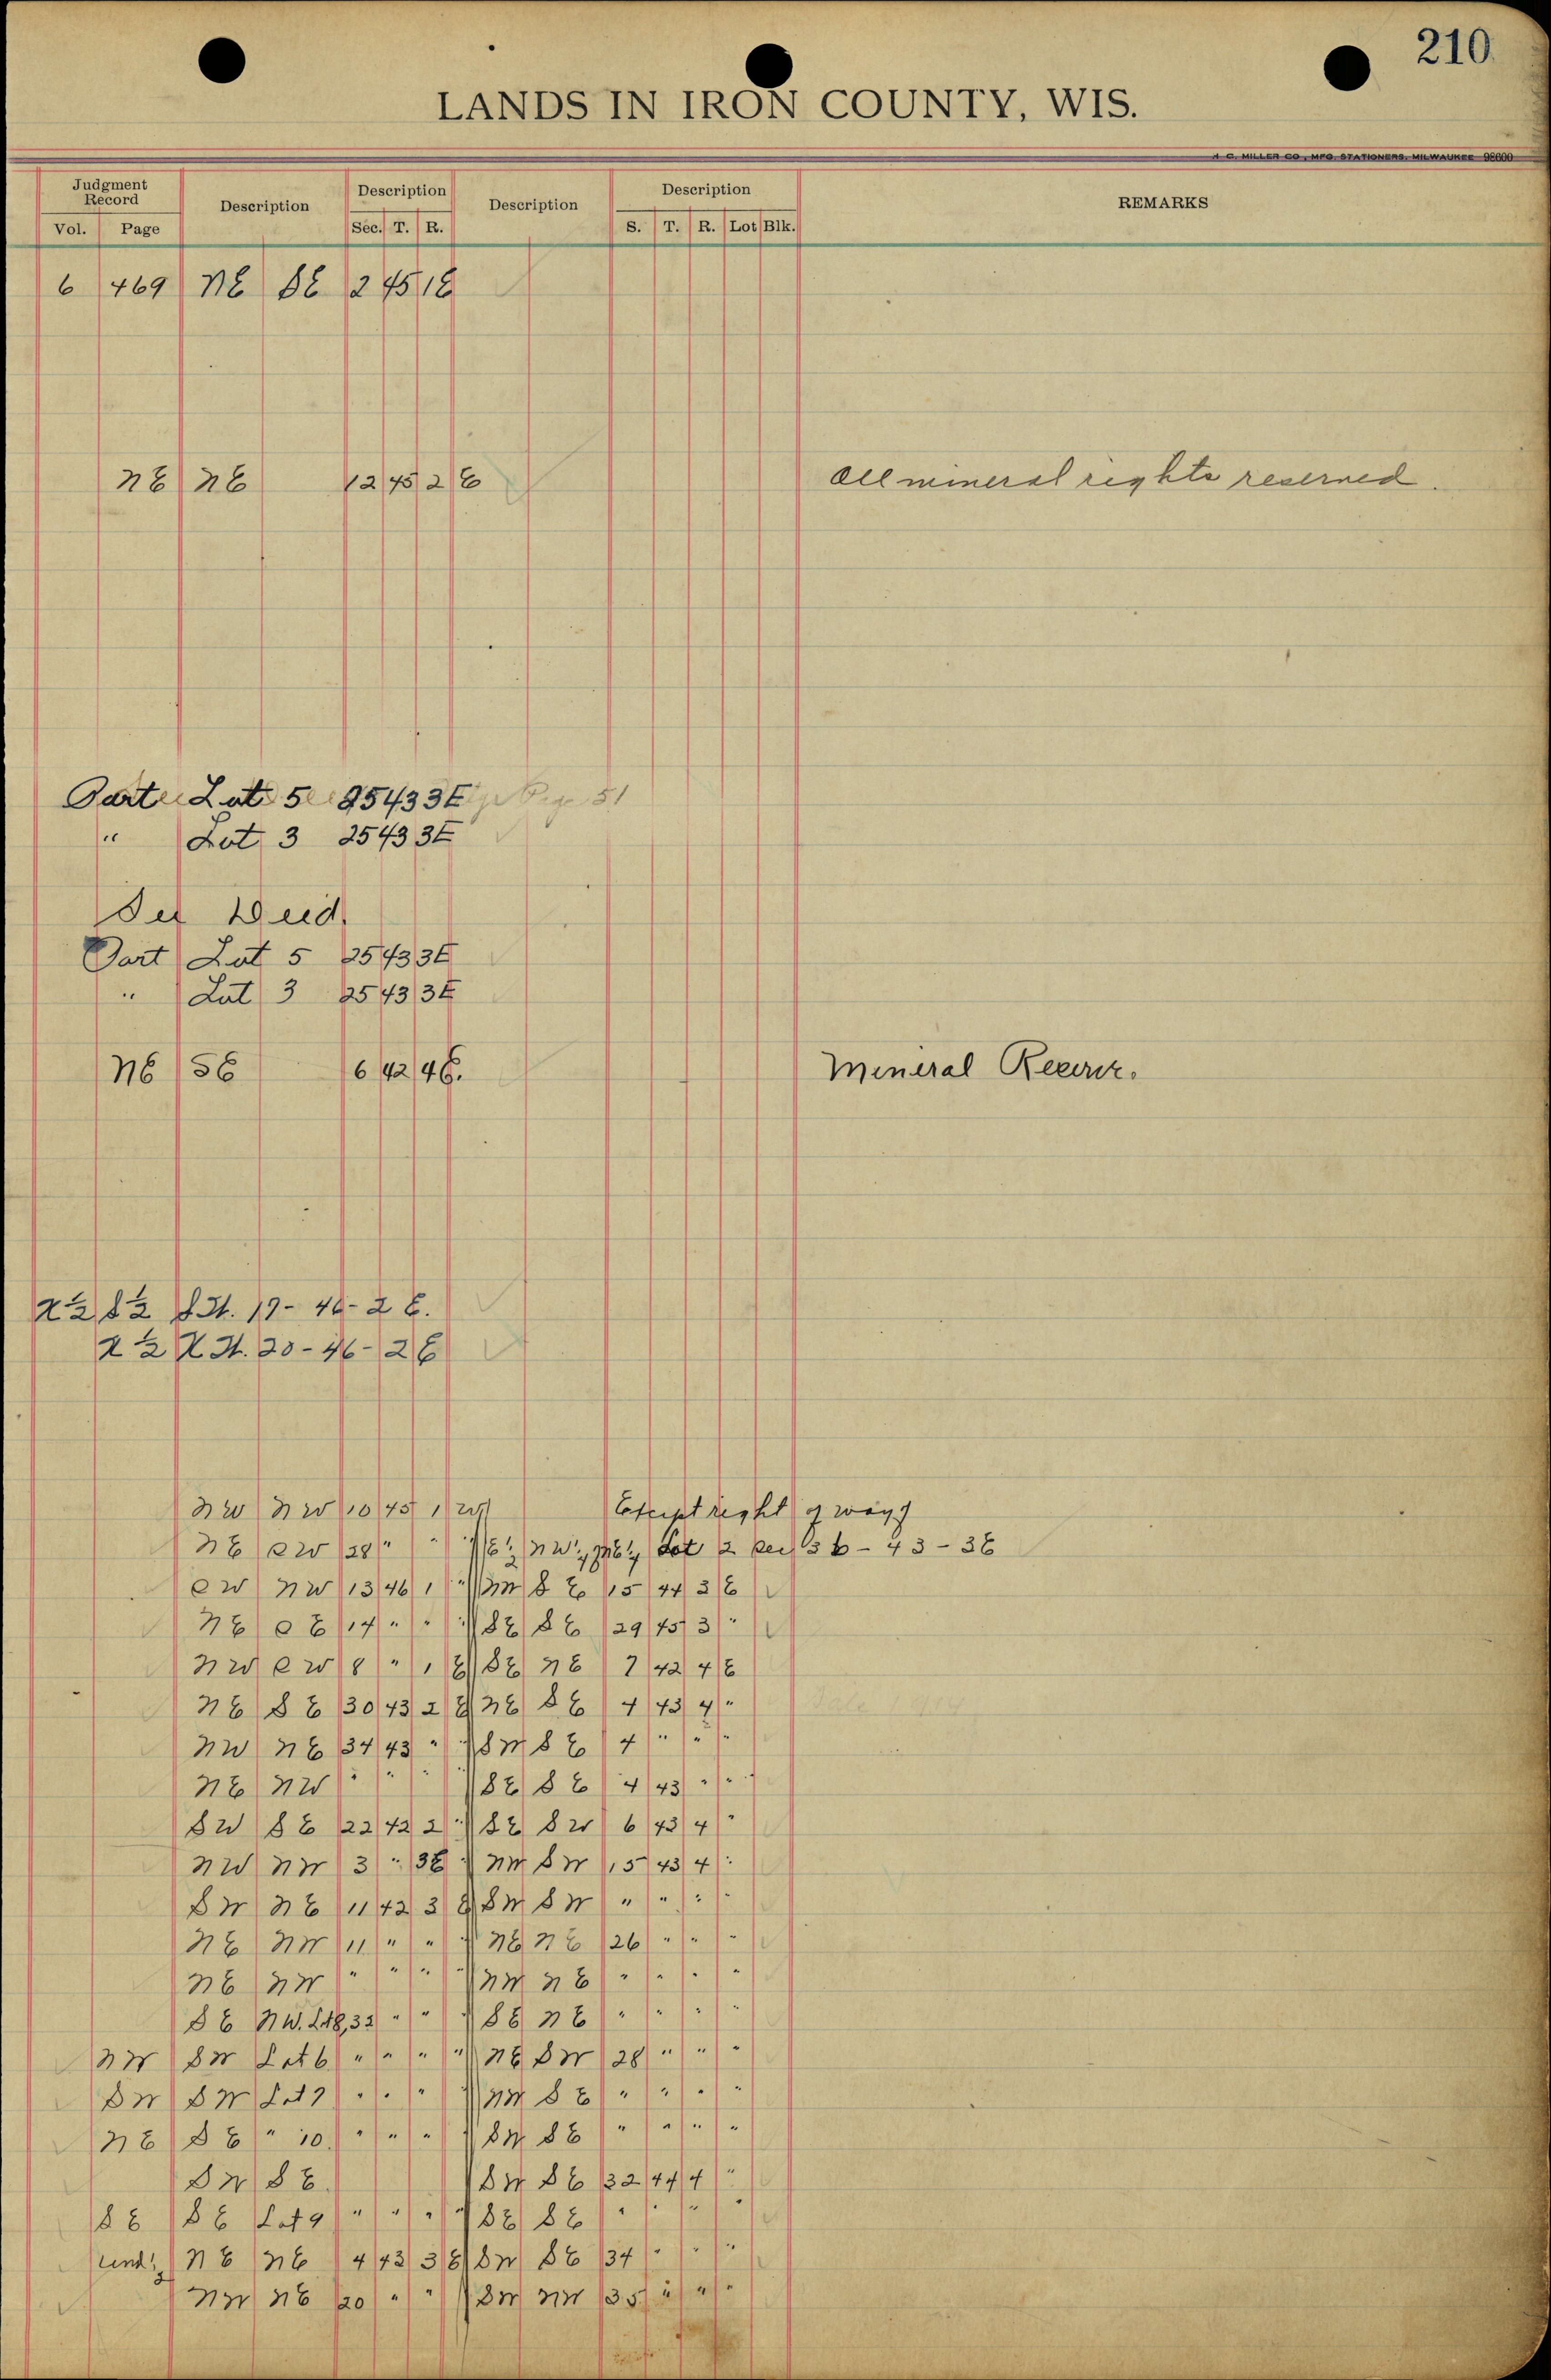 210
LANDS IN IRON COUNTY, WIS.
H. C. MILLER CO., MFG. STATIONERS, MILWAUKEE 98600
Judgment Record Description Description Description Description REMARKS
Vol. Page Sec. T. R. S. T. R. Lot Blk.
6 469 NE SE 2 45 1E
NE NE 12 45 2 E All mineral rights reserved.
Part Lot 5 25 43 3E 51
" Lot 3 25 43 3E
See Deed.
Part Lot 5 25 43 3E
" Lot 3 25 43 3E
NE SE 6 42 4E. Mineral Reserve.
N½ S½ 17-46-2 E.
N½ 20-46-2E
NW NW 10 45 1 W Except right of way
NE SW 28 " " NW¼ NE¼ Lot 2 Sec 36-43-3E
SW NW 13 46 1 " NW SE 15 44 3 E
NE SE 14 " " " SE SE 29 45 3 "
NW SW 8 " 1 E SE NE 7 42 4 E
NE SE 30 43 2 E NE SE 4 43 4 "
NW NE 34 43 " SW SE 4 " " "
NE NW " " " SE SE 4 43 " "
SW SE 22 42 2 " SE SW 6 43 4 "
NW NW 3 " 3E NW SW 15 43 4 "
SW NE 11 42 3 E SW SW " " " "
NE NW 11 " " " NE NE 26 " " "
NE NW " " " " NW NE " " " "
SE NW. Lot 8, 32 " " " SE NE " " " "
NW SW Lot 6 " " " " NE SW 28 " " "
SW SW Lot 7 " " " NW SE " " " "
NE SE " 10 " " " SW SE " " " "
SW SE. SW SE 32 44 4 "
SE SE Lot 9 " " " " SE SE " " " "
und½ NE NE 4 43 3 E SW SE 34 " " "
NW NE 20 " " SW NW 35 " " "